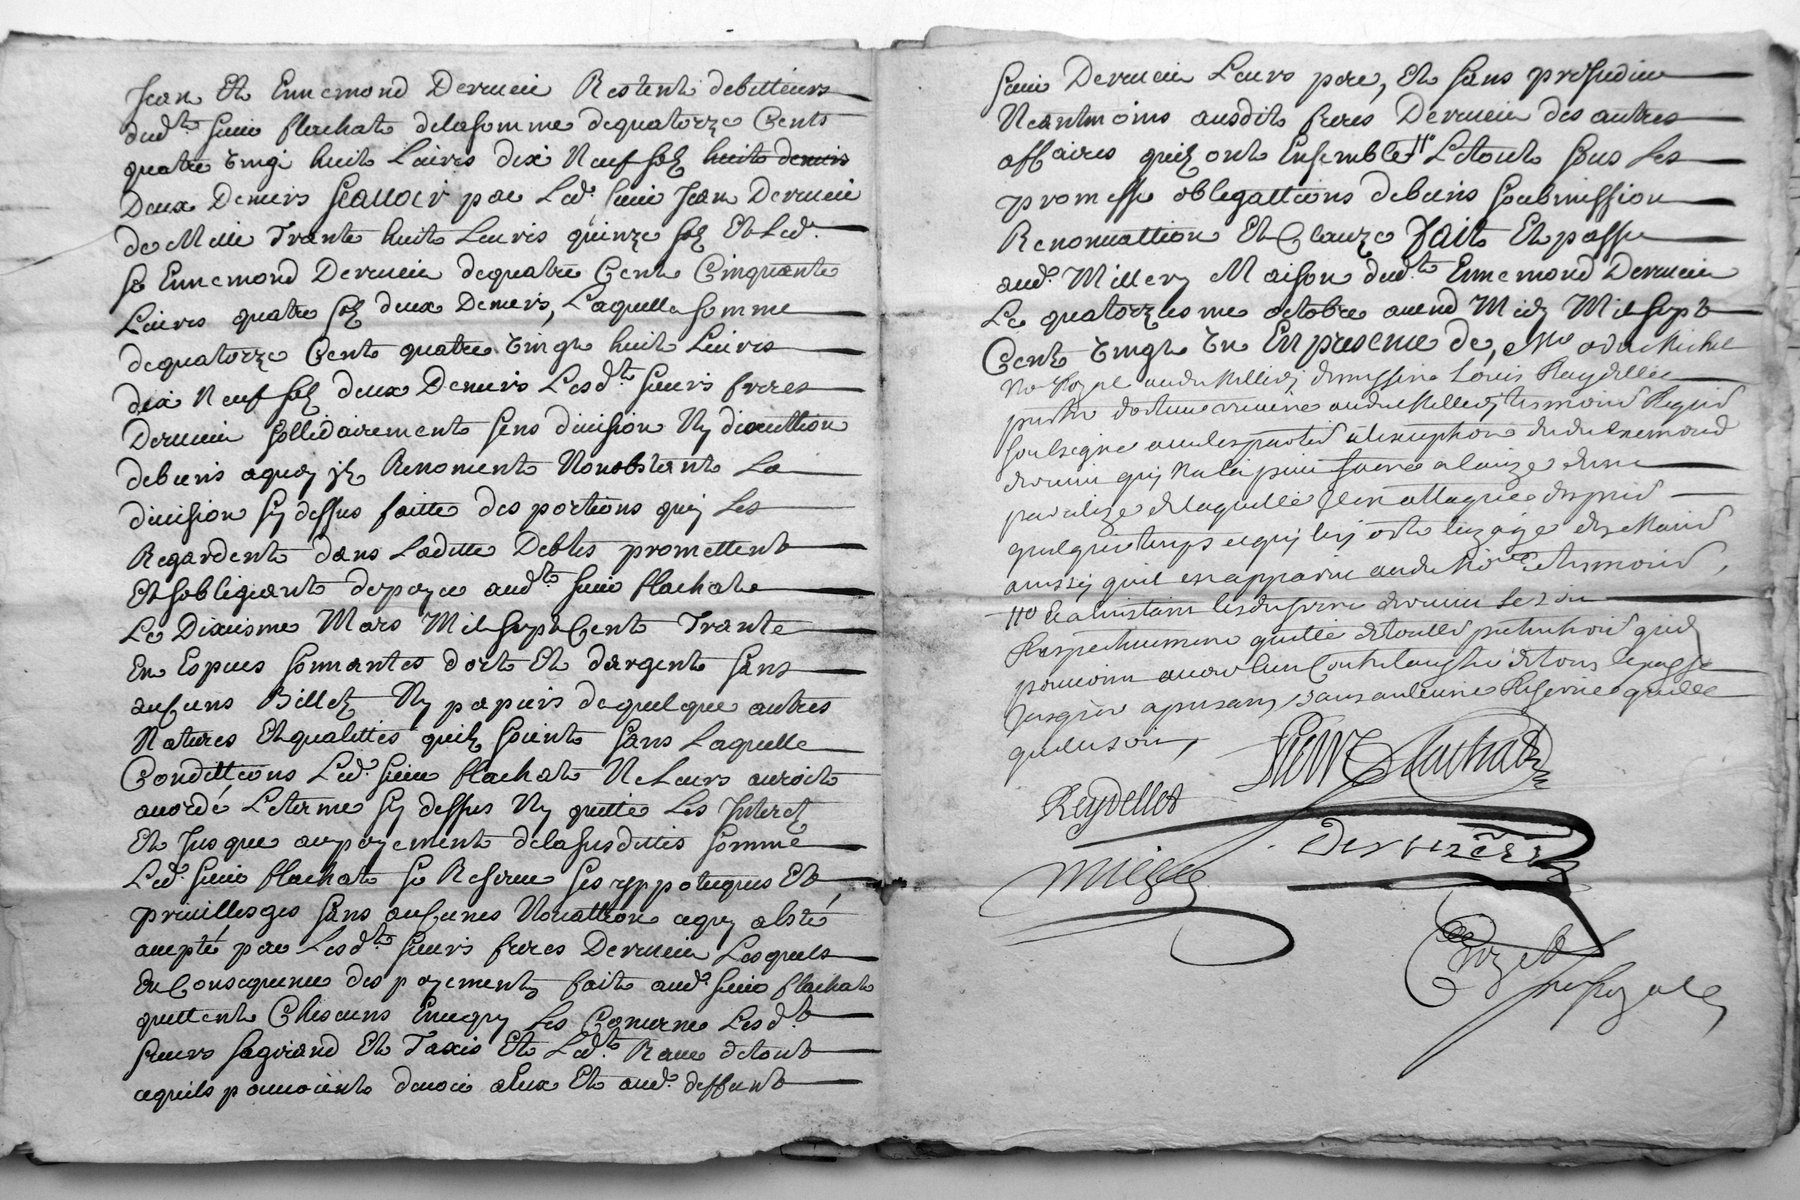 Jean Et Ennemond Dervieu Restent debitteurs
dud.t sieur flachat de la somme de quatorze Cents
quatre vingt huit Livres dix Neuf sols huit deniers
Deux Deniers scauoir par Led. sieur Jean Dervieu
de Mille Trante huit Livres quinze sols Et Led.
Sr Ennemond Dervieu de quatre Cent Cinquante
Livres quatre sols deux Deniers, Laquelle somme
de quatorze Cent quatre vingt huit Livres
dix Neuf sols deux Deniers Lesd.ts sieurs freres
Dervieu sollidairement sens diuision Ny discuttion
de biens a quoy ils Renoncent Nonobstant La
diuision sy dessus faitte des portions quy Les
Regardent dans Laditte Debtes promettent
Et sobligeant de payer aud.t sieur flachat
Le Dixiesme Mars Mil sept Cent Trante
En Espeses sonnantes dort Et dargent sans
aucuns Billets Ny papiers de quelque autres
Natures Et qualittés quils soient sans Laquelle
Condittions Led. sieur flachat Ne Leurs auroit
acordé Le terme sy dessus Ny quitté Les Interets
Et Jusque au payement de la susditte somme
Led. sieur flachat se Reserue ses yppoteques Et
priuilleges sans aucunes Nouattion ce quy a Esté
acepté par Lesd.ts sieurs freres Dervieu Lesquels
En Consequence des payements fait aud. sieur flachat
quittent Chescuns En ce quy Les Concerne Lesd.t
sieurs Et Taxis Et Led.t Raue de tout
ce quils pouuoient deuoir a Eux Et aud. deffunt
sieur Dervieu Leurs pere, Et sans prejudice
Neantmoins ausdits freres Dervieu des autres
affaires quils ont Ensemble Le tout sous Les
promesse obligattions de biens soubmission
Renonciattion Et Clauze fait Et passé
aud. Millery Maison dud.t Ennemond Dervieu
Le quatorziesme octobre auend Midy Mil sept
Cent vingt En presence de, Me
No Royal audit Millery de messire Louis Reydellet
audit Millery
soubsigné auec les parties a lexception dudit Enemond
dervieu quy na sceu faire a cauze dune
paralize de laquelle Il est attaqué depuis
quelque temps ce quy luy oste luzage des Mains
ainssy quil est apparu audit No.re
Et a linstant lesdits freres dervieu se sont
Respectiuement quitté de toutes pretentions quils
pouuoient auoir lun Contre lautre de tout le passé
Jusques a present, sans aucune Reserue quelle
quelle soit,
Pierre Flachat
Reydellet
Dervieu